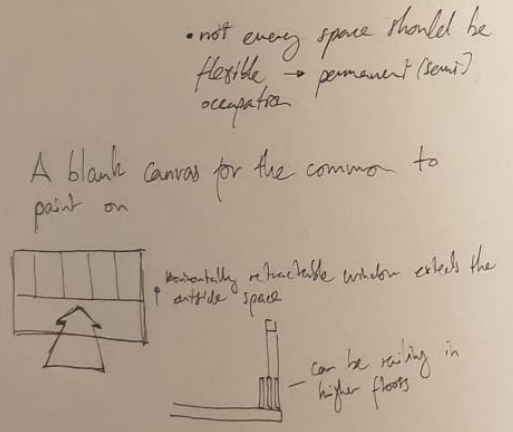 • not every space should be
flexible → permanent (semi)
occupation
A blank canvas for the common to
paint on
horizontally retractable window extends the
outside space
can be railing in
higher floors